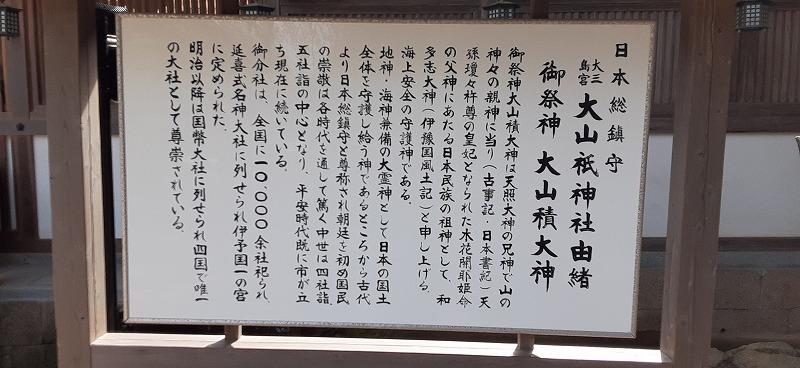 日本総鎮守
大三島宮 大山祇神社由緒
御祭神 大山積大神
御祭神大山積大神は天照大神の兄神で山の
神々の親神に当り(古事記・日本書記)天
孫瓊々杵尊の皇妃となられた木花開耶姫命
の父神にあたる日本民族の祖神として、和
多志大神(伊豫国風土記)と申し上げる。
海上安全の守護神である。
地神・海神兼備の大霊神として日本の国土
全体を守護し給う神であるところから古代
より日本総鎮守と尊称され朝廷を初め国民
の崇敬は各時代を通して篤く中世は四社詣、
五社詣の中心となり、平安時代既に市が立
ち現在に続いている。
御分社は、全国に一〇、〇〇〇余社祀られ、
延喜式名神大社に列せられ伊予国一の宮
に定められた。
明治以降は国幣大社に列せられ四国で唯一
の大社として尊崇されている。